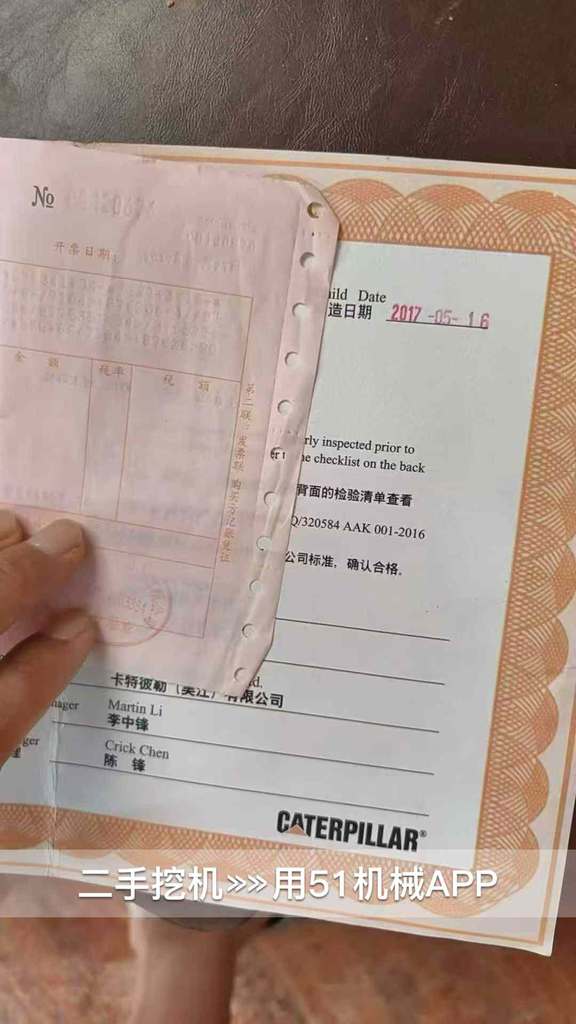 №
开票日期:
金 额
税率
税 额
第二联:发票联 购买方记账凭证
uild Date
造日期 2017-05-16
rly inspected prior to
e checklist on the back
背面的检验清单查看
Q/320584 AAK 001-2016
公司标准，确认合格。
d.
卡特彼勒（吴江）有限公司
nager Martin Li
李中锋
ger Crick Chen
理 陈 锋
CATERPILLAR®
二手挖机>>>用51机械APP